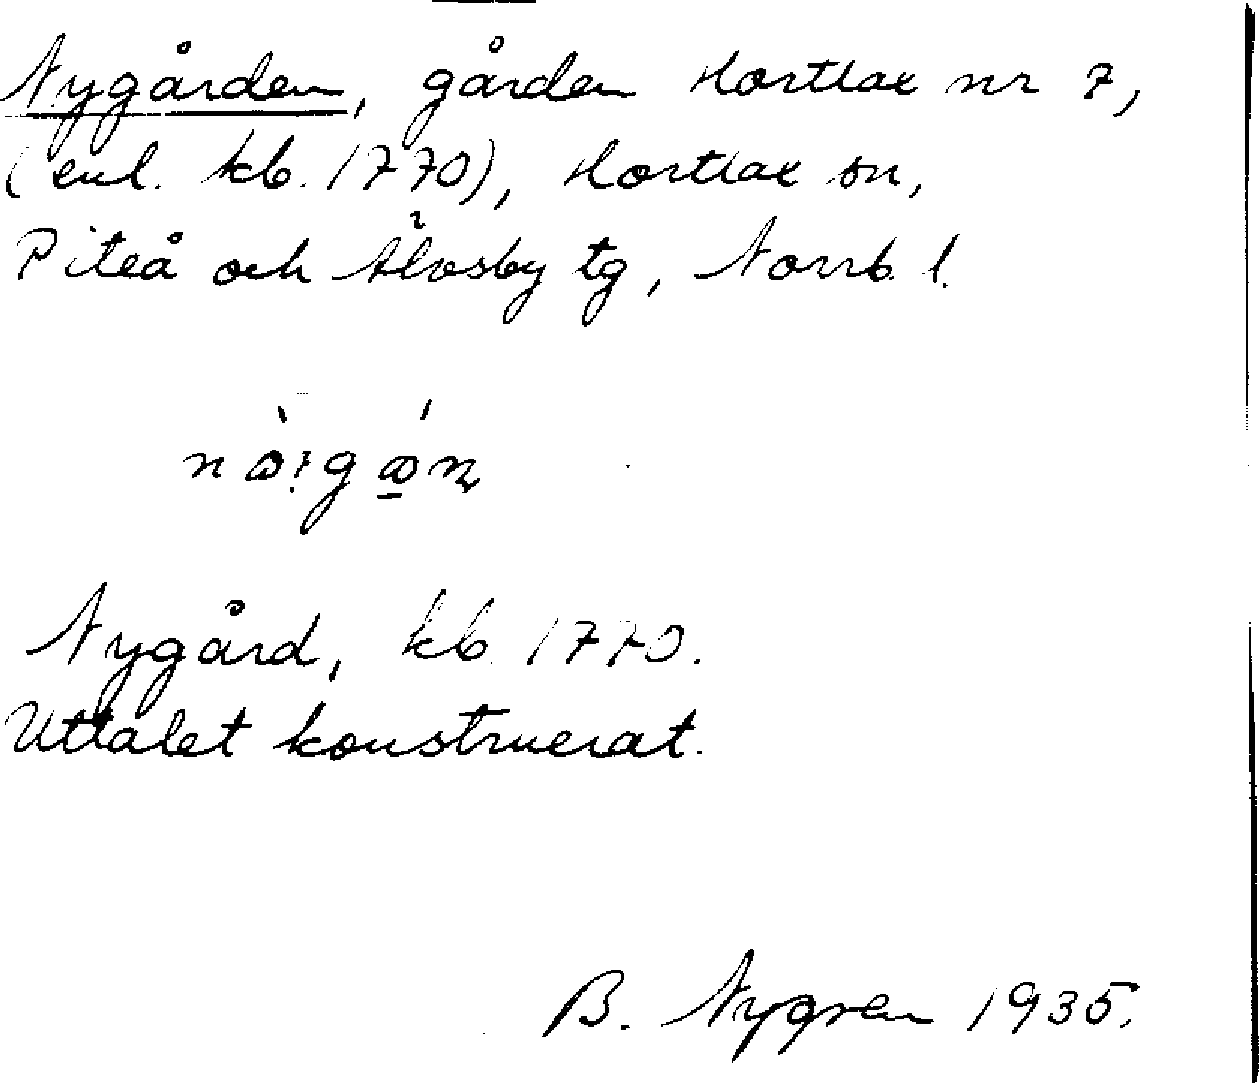 Nygården, gården Hortlax nr 7,
(enl. kb. 1770), Hortlax sn,
Piteå och Älvsby tg, Norrb. l.
Nygård, kb. 1770.
Uttalet konstruerat.
B. Nygren 1935.